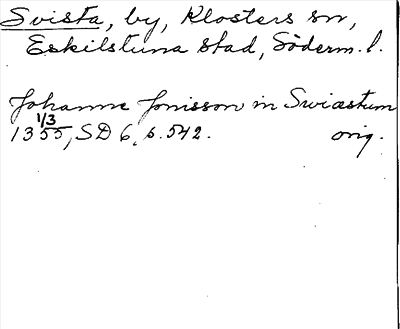 Svista, by, Klosters sn,
Eskilstuna stad, Söderm. l.
Johanne Jonisson in Swiæstum
1355 1/3, SD 6, s. 542. orig.